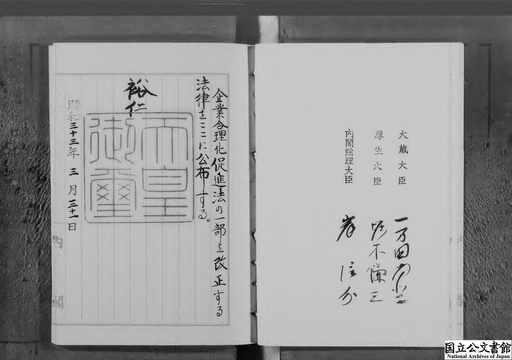 大蔵大臣 一万田尚登
厚生大臣 堀木鎌三
内閣総理大臣 岸信介
企業合理化促進法の一部を改正する
法律をここに公布する。
裕仁
天皇
御璽
昭和三十三年三月三十一日
国立公文書館
National Archives of Japan